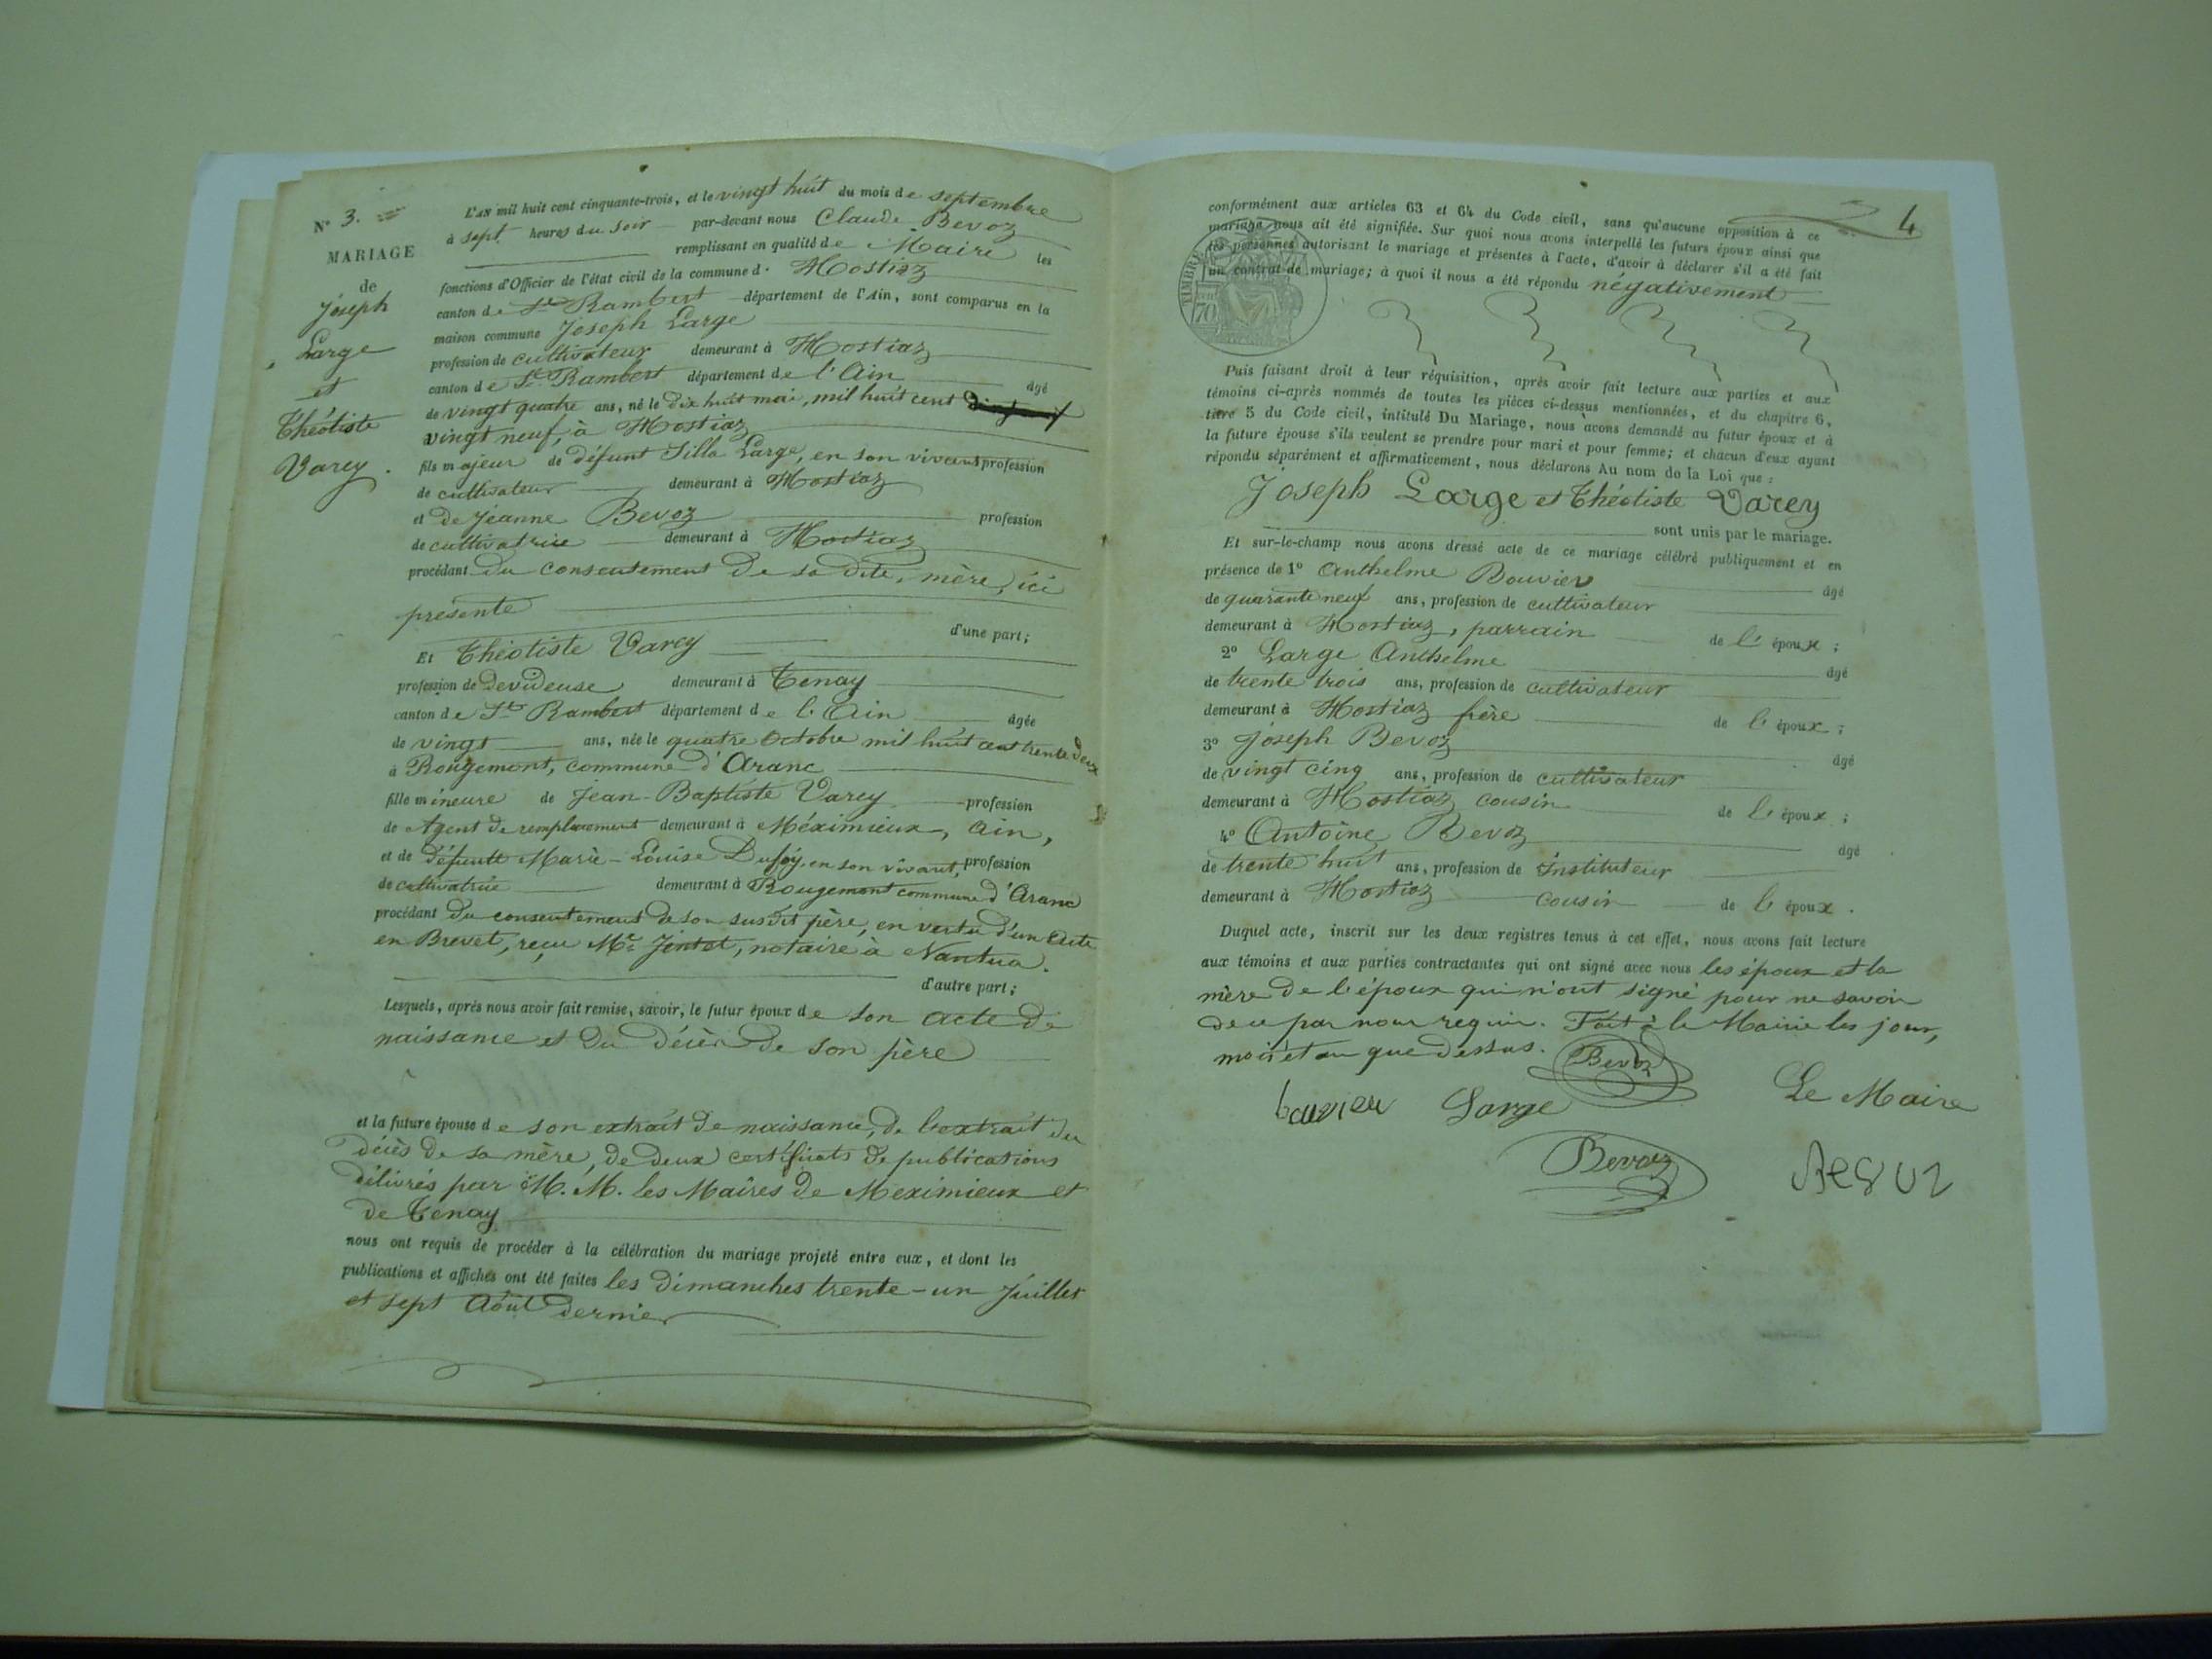 N° 3.
MARIAGE
de
Joseph
Large
et
Théotiste
Varey.
L'an mil huit cent cinquante-trois, et le vingt huit du mois de septembre
à sept heures du soir par-devant nous Claude Bevoz
remplissant en qualité de Maire les
fonctions d'Officier de l'état civil de la commune d. Hostiaz
canton de St Rambert département de l'Ain, sont comparus en la
maison commune Joseph Large
profession de cultivateur demeurant à Hostiaz
canton de St Rambert département de l'Ain âgé
de vingt quatre ans, né le dix huit mai, mil huit cent
vingt neuf, à Hostiaz
fils majeur de défunt Large, en son vivant profession
de cultivateur demeurant à Hostiaz
et de Jeanne Bevoz profession
de cultivatrice demeurant à Hostiaz
procédant du consentement de sa dite, mère, ici
présente
d'une part;
Et Théotiste Varey
profession de devideuse demeurant à Tenay
canton de St Rambert département de l'Ain âgée
de vingt ans, née le quatre octobre mil huit cent trente deux
à Rougemont, commune d'Aranc
fille mineure de Jean-Baptiste Varey profession
de Agent de remplacement demeurant à Méximieux, Ain,
et de défunte Marie-Louise en son vivant, profession
de cultivatrice demeurant à Rougemont commune d'Aranc
procédant du consentement de son susdit père, en vertu d'un acte
en Brevet, reçu Me notaire à Nantua.
d'autre part;
Lesquels, après nous avoir fait remise, savoir, le futur époux de son acte de
naissance et du décès de son père
et la future épouse de son extrait de naissance, de l'extrait du
décès de sa mère, de deux certificats de publications
délivrés par M. M. les Maires de Meximieux et
de Tenay
nous ont requis de procéder à la célébration du mariage projeté entre eux, et dont les
publications et affiches ont été faites les dimanches trente-un Juillet
et sept Août dernier
4
conformément aux articles 63 et 64 du Code civil, sans qu'aucune opposition à ce
mariage nous ait été signifiée. Sur quoi nous avons interpellé les futurs époux ainsi que
les personnes autorisant le mariage et présentes à l'acte, d'avoir à déclarer s'il a été fait
un contrat de mariage; à quoi il nous a été répondu négativement
TIMBRE
70
Puis faisant droit à leur réquisition, après avoir fait lecture aux parties et aux
témoins ci-après nommés de toutes les pièces ci-dessus mentionnées, et du chapitre 6,
titre 5 du Code civil, intitulé Du Mariage, nous avons demandé au futur époux et à
la future épouse s'ils veulent se prendre pour mari et pour femme; et chacun d'eux ayant
répondu séparément et affirmativement, nous déclarons Au nom de la Loi que :
Joseph Large et Théotiste Varey
sont unis par le mariage.
Et sur-le-champ nous avons dressé acte de ce mariage célébré publiquement et en
présence de 1° Anthelme Bouvier âgé
de quarante neuf ans, profession de cultivateur
demeurant à Hostiaz, parrain de l'époux ;
2° Large Anthelme âgé
de trente trois ans, profession de cultivateur
demeurant à Hostiaz frère de l'époux ;
3° Joseph Bevoz âgé
de vingt cinq ans, profession de cultivateur
demeurant à Hostiaz cousin de l'époux ;
4° Antoine Bevoz âgé
de trente huit ans, profession de instituteur
demeurant à Hostiaz cousin de l'époux.
Duquel acte, inscrit sur les deux registres tenus à cet effet, nous avons fait lecture
aux témoins et aux parties contractantes qui ont signé avec nous les époux et la
mère de l'époux qui n'ont signé pour ne savoir
de ce par nous requis. Fait à la Mairie les jour,
mois et an que dessus. Bevoz
bouvier Large Le Maire
Bevoz